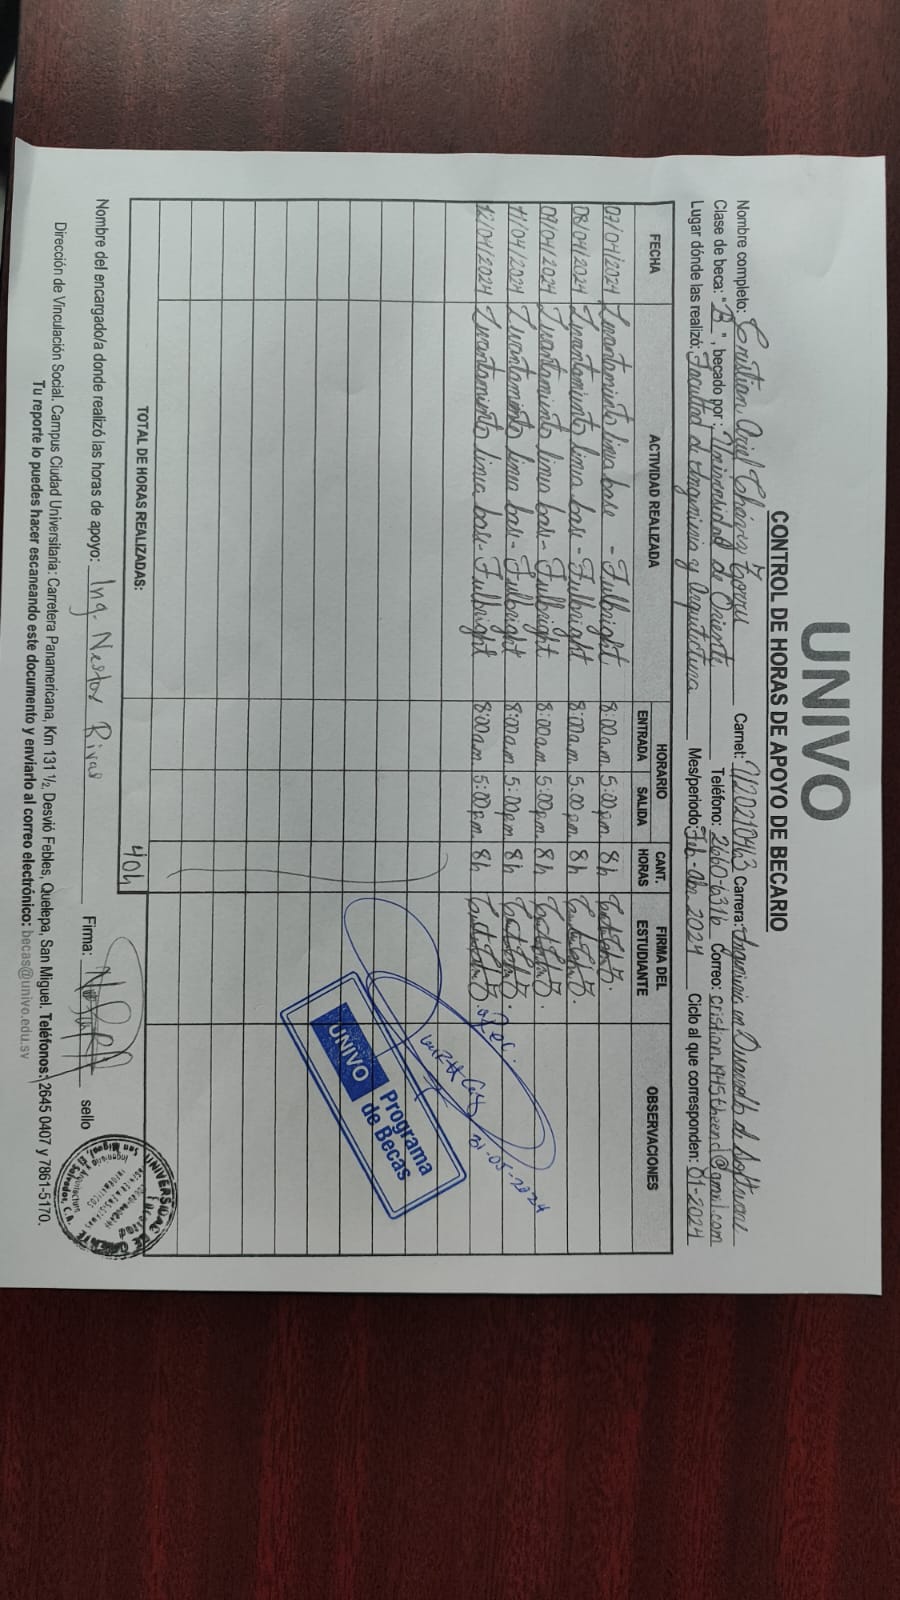 UNIVO
CONTROL DE HORAS DE APOYO DE BECARIO
Nombre completo: Cristian Ariel Carnet: U20210463 Carrera: Ingeniería en Desarrollo de Software
Clase de beca: "B", becado por: Universidad de Oriente Teléfono: 2660-6316 Correo:
Lugar dónde las realizó: Facultad de Ingeniería y Arquitectura Mes/periodo: Feb-Abr 2024 Ciclo al que corresponden: 01-2024
FECHA ACTIVIDAD REALIZADA HORARIO ENTRADA SALIDA CANT. HORAS FIRMA DEL ESTUDIANTE OBSERVACIONES
07/04/2024 Levantamiento linea base - Fulbright. 8:00a.m. 5:00pm 8h
08/04/2024 Levantamiento linea base - Fulbright 8:00a.m. 5:00pm 8h
09/04/2024 Levantamiento linea base - Fulbright 8:00a.m 5:00pm 8h
11/04/2024 Levantamiento linea base - Fulbright 8:00a.m 5:00pm 8h
12/04/2024 Levantamiento linea base - Fulbright 8:00a.m 5:00pm 8h
Rec.
21-05-2024
Programa de Becas
UNIVO
TOTAL DE HORAS REALIZADAS: 40h
Nombre del encargado/a donde realizó las horas de apoyo: Ing. Nestor Rivas Firma: sello
UNIVERSIDAD DE ORIENTE
San Miguel, El Salvador, C.A.
Dirección de Vinculación Social. Campus Ciudad Universitaria: Carretera Panamericana, Km 131 ½, Desvió Febles, Quelepa, San Miguel. Teléfonos: 2645 0407 y 7861-5170.
Tu reporte lo puedes hacer escaneando este documento y enviarlo al correo electrónico: becas@univo.edu.sv